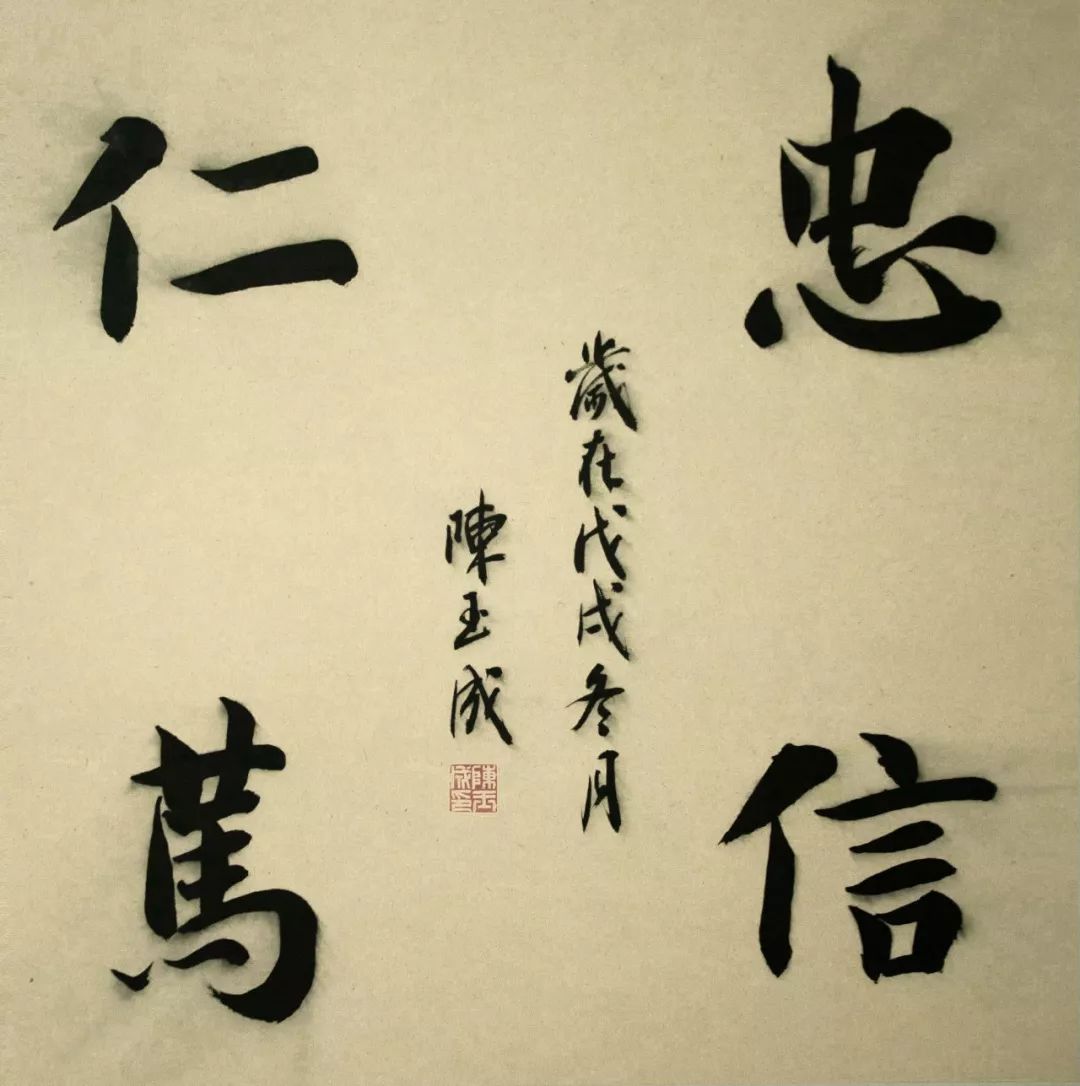 忠信
仁篤
歲在戊戌冬月
陳玉成
陳玉成印